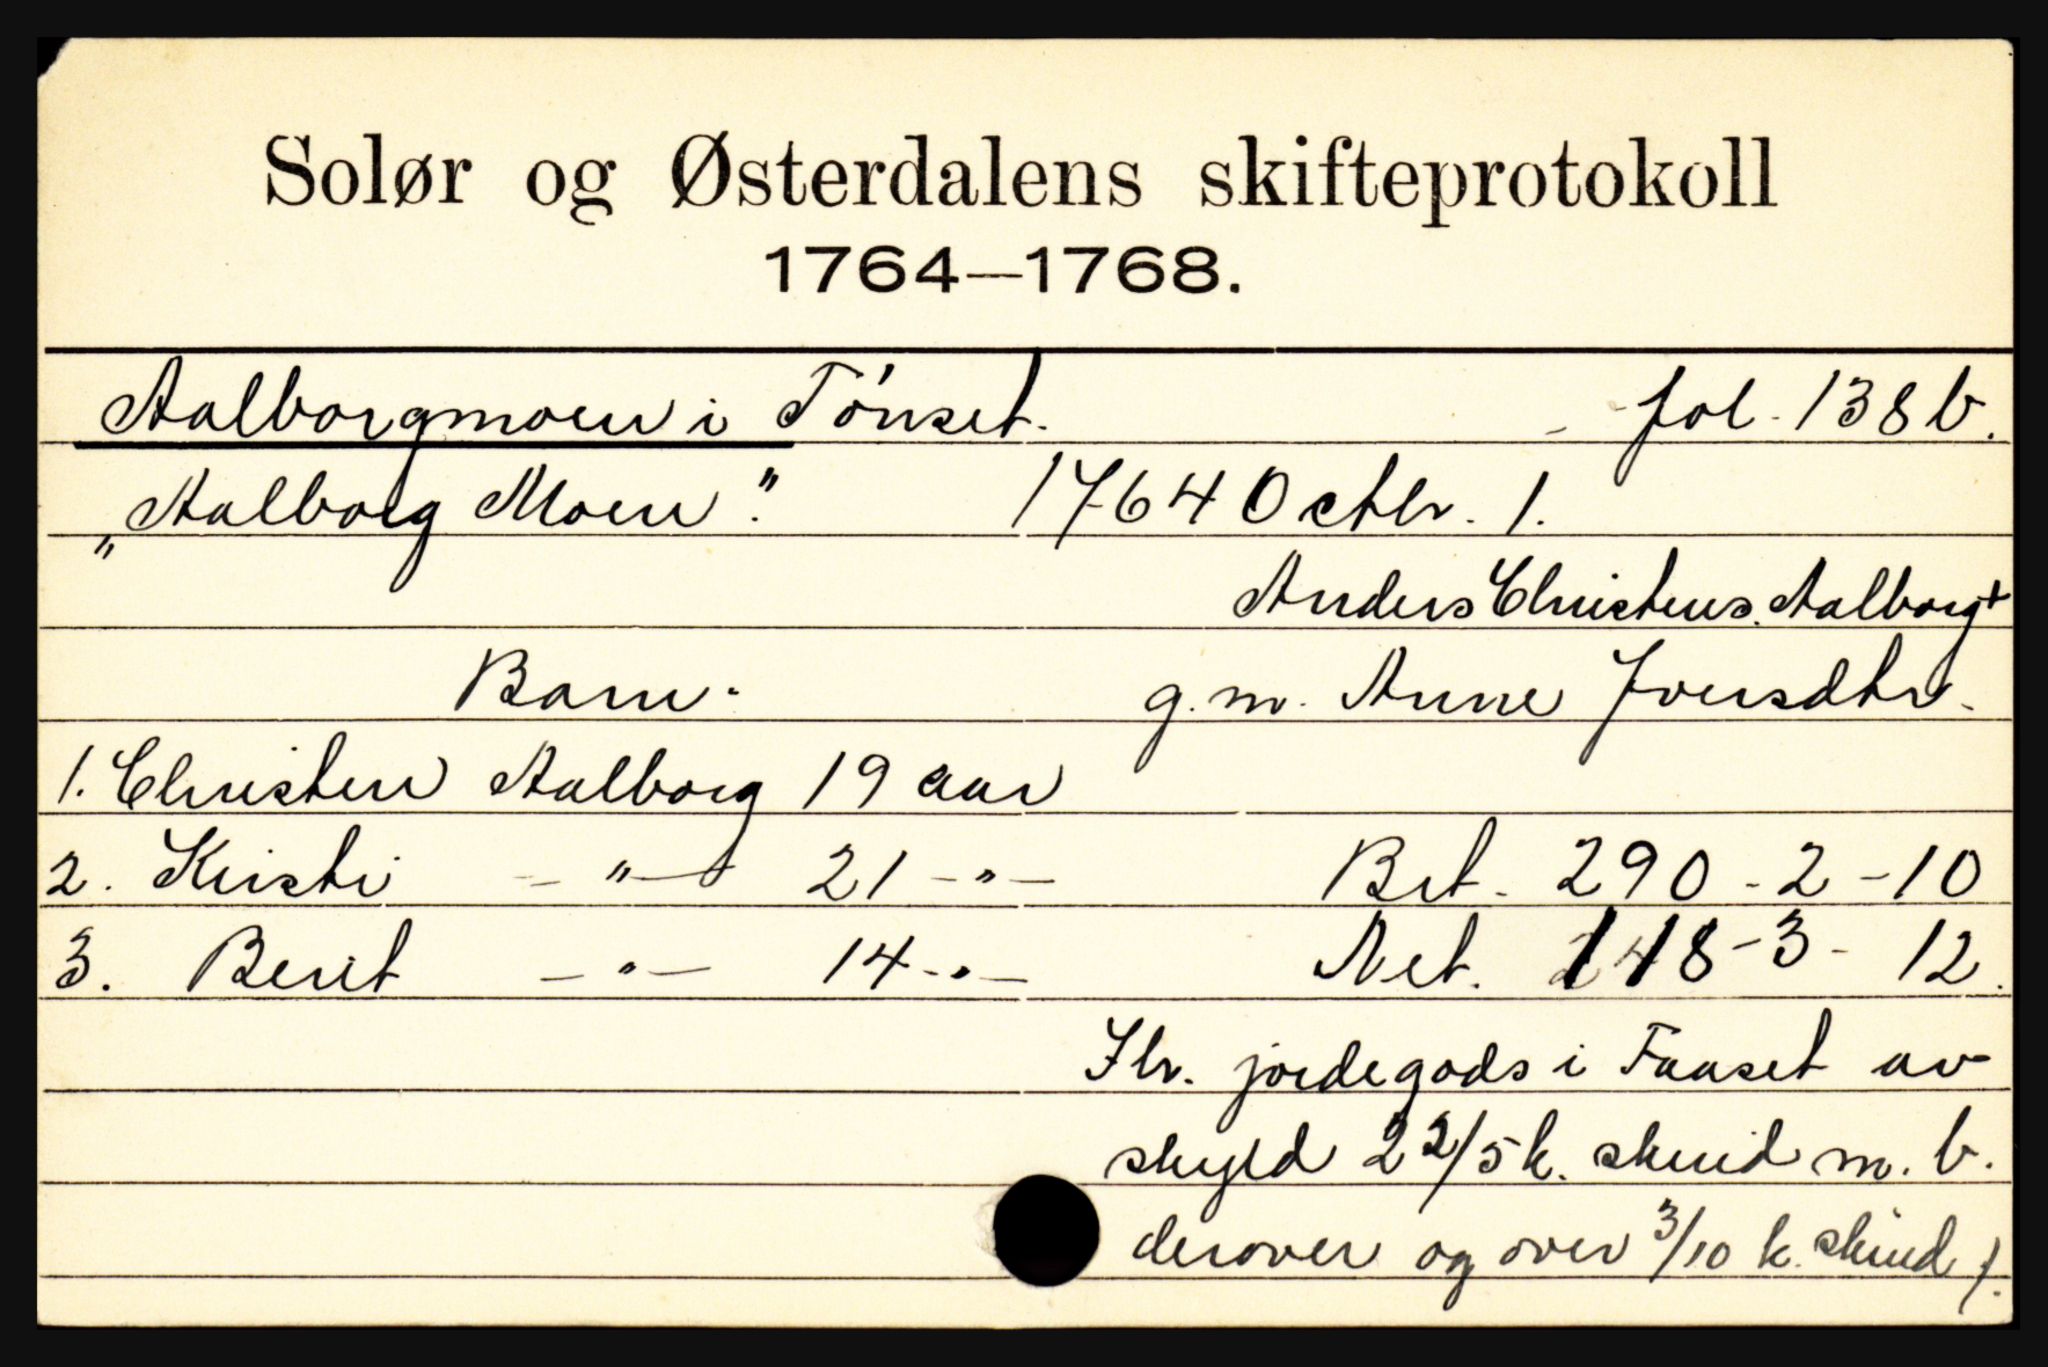 Solør og Østerdalens skifteprotokoll
1764—1768.
Aalborgmoen i Tónset. - fol. 138 b.
"Aalborg Moen". 1764 Octbr. 1.
Anders Christens. Aalborg +
Barn. g. m. Anne Iversdtr.
1. Christen Aalborg 19 aar
2. Kirsti - " - 21 - " - Brt. 290 - 2 - 10
3. Berit - " - 14 - " - Net. 148 - 3 - 12.
Ibr. jordegods i Faaset av
skyld 2 2/5 k. skind m. b.
derover og over 3/10 k. skind).